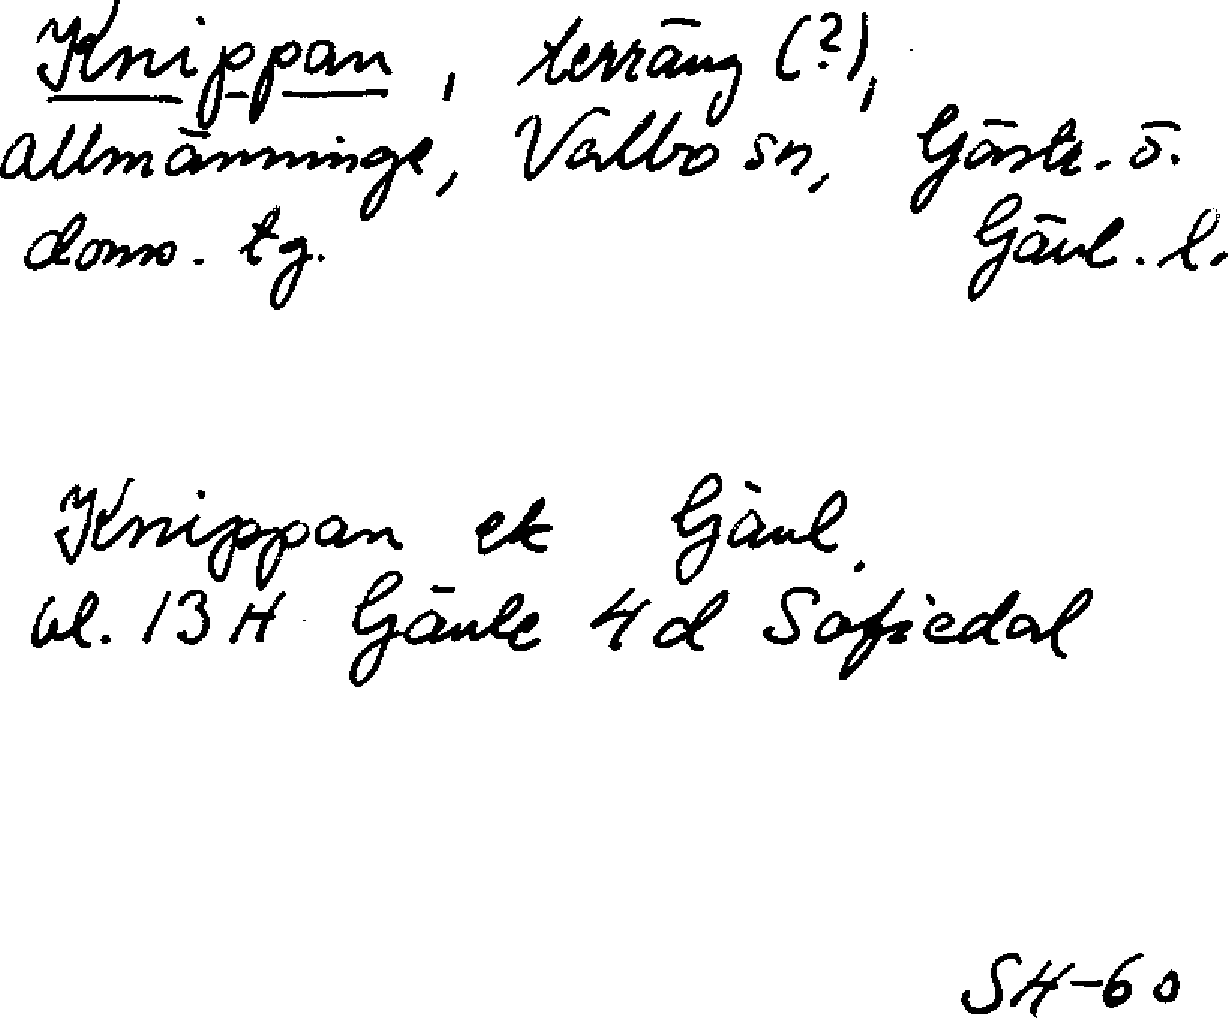 Knippan, terräng (?),
allmänninge, Valbo sn, Gästr. ö.
doms. tg. Gävl. l.
Knippan ek Gävl.
bl. 13 H Gävle 4 d Sofiedal
SH-60